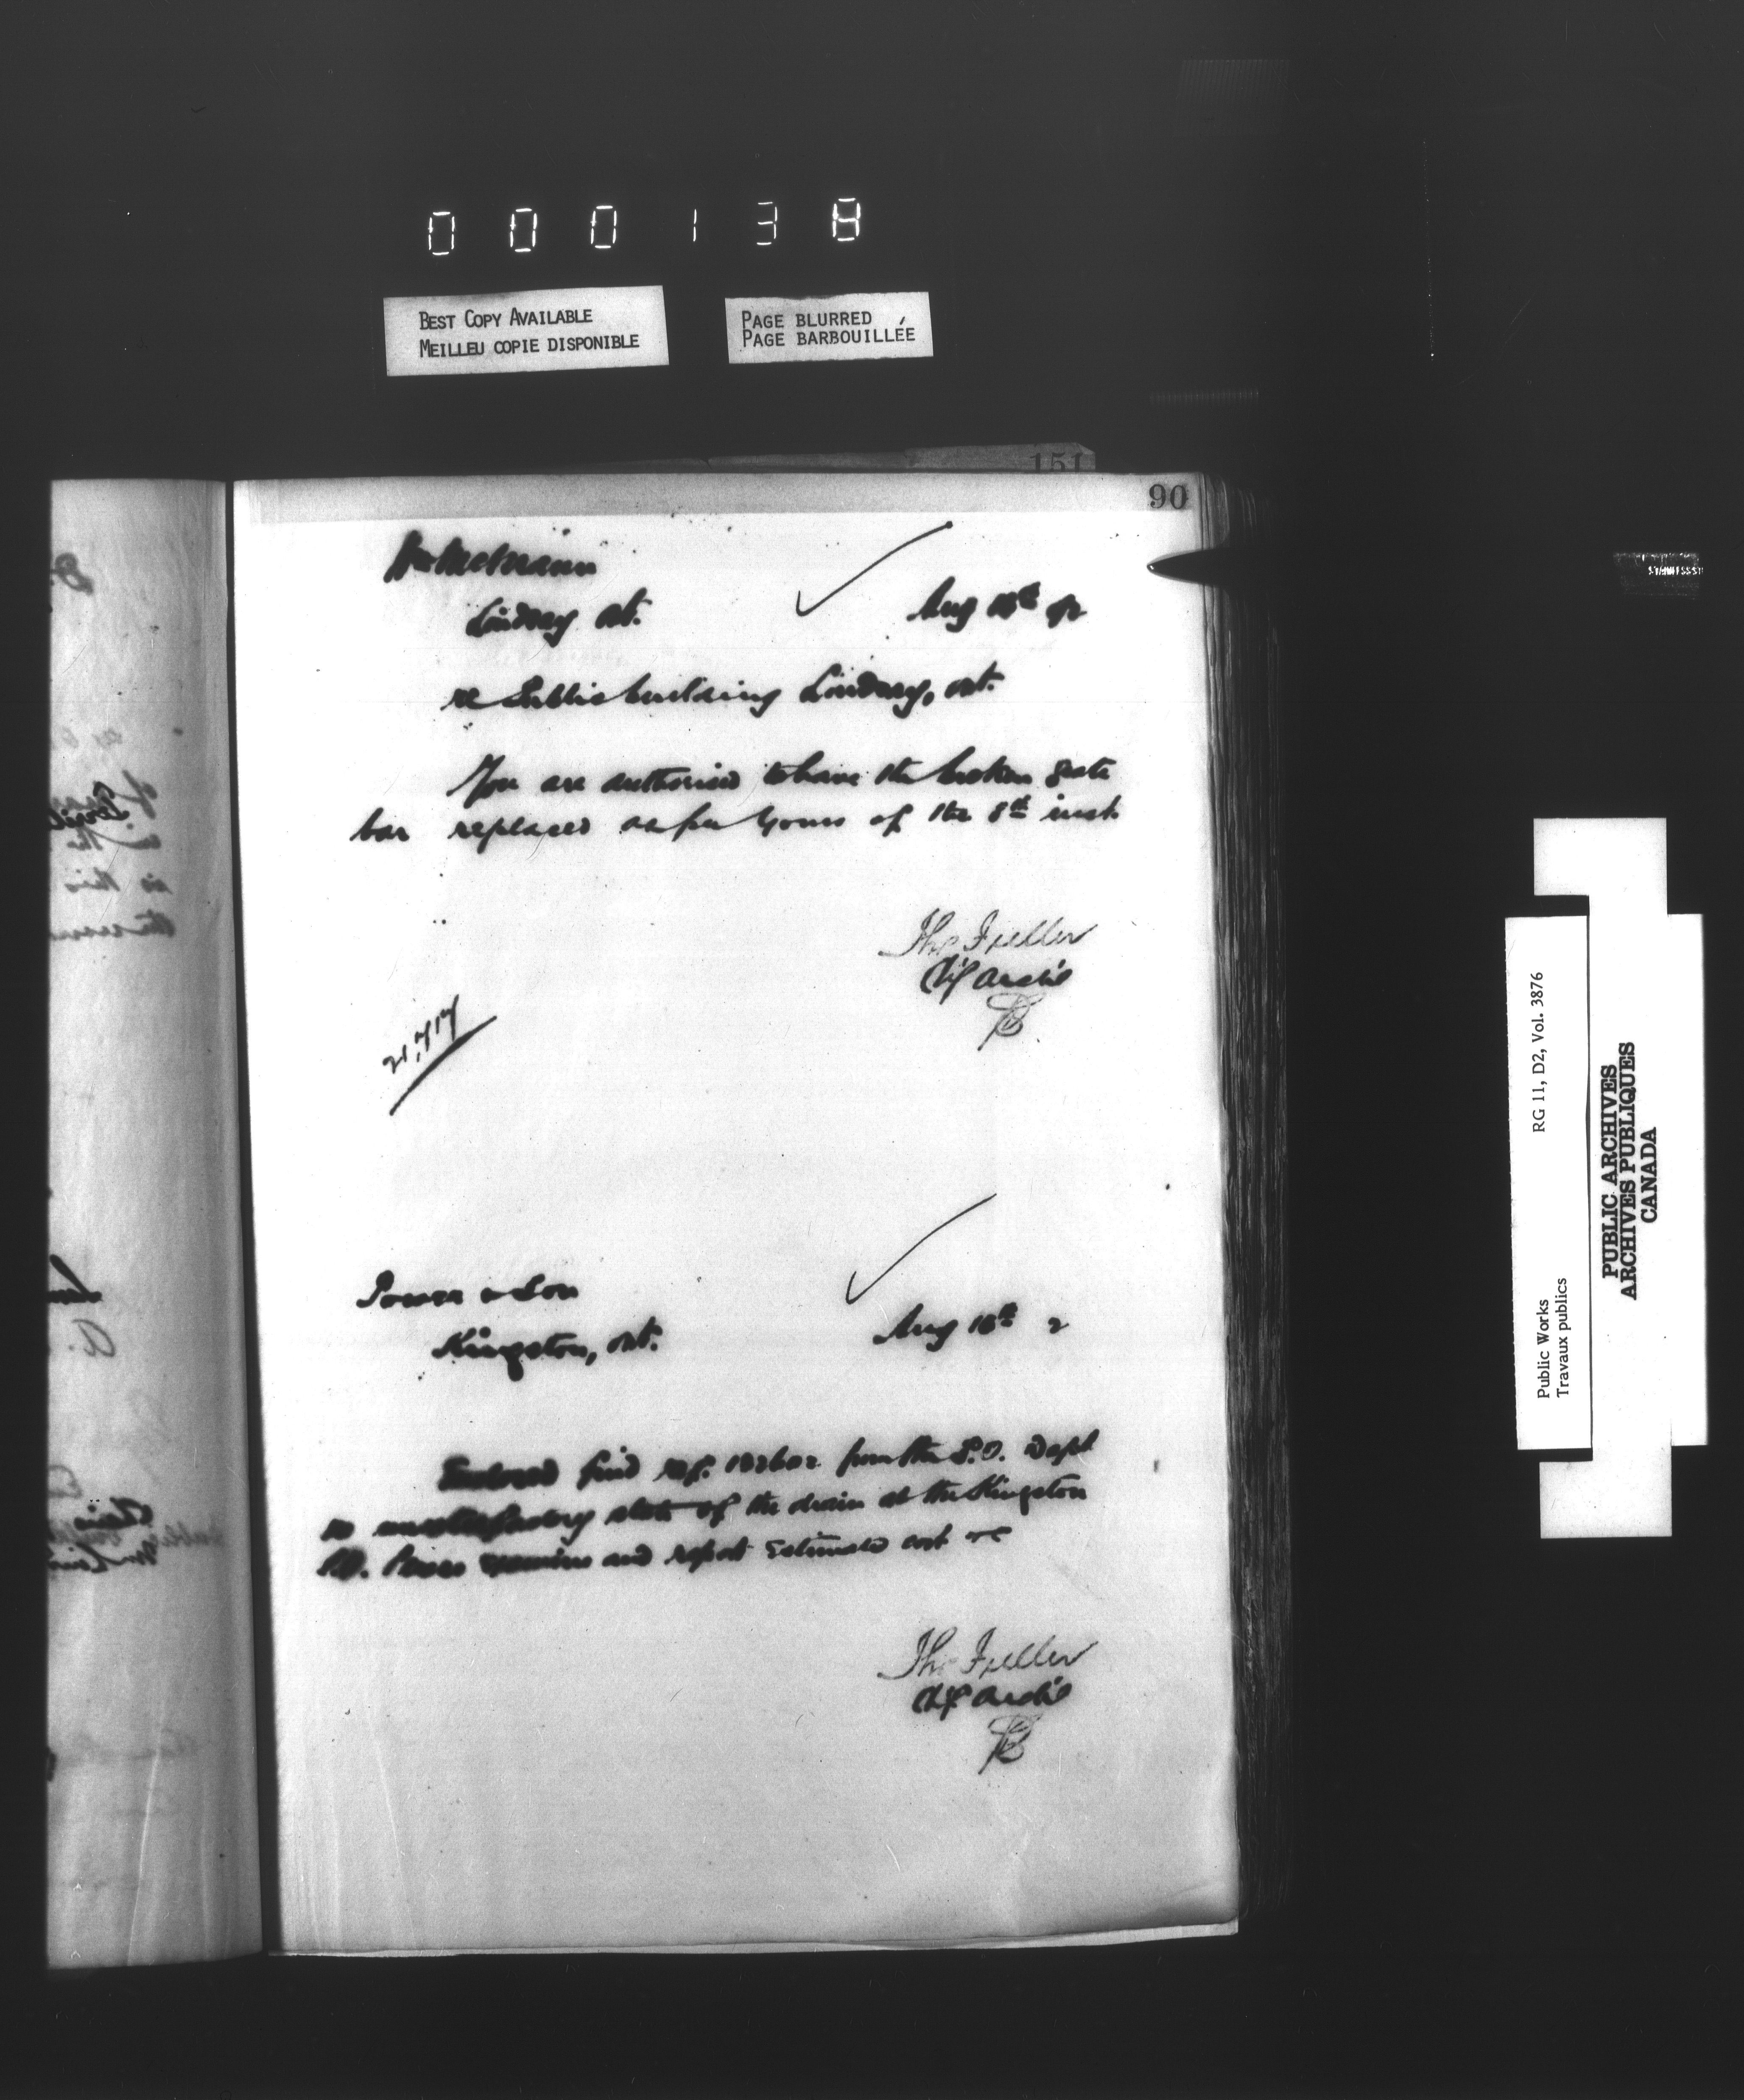 000138
BEST COPY AVAILABLE
MEILLEU COPIE DISPONIBLE
PAGE BLURRED
PAGE BARBOUILLÉE
151
90
Lindsay Ont.
Aug 18th 92
re Public building Lindsay, Ont.
You are authorised to have the broken grate
bar replaced as per yours of the 8th inst.
Tho Fuller
Chf Archt
21,717
Power & Son
Kingston, Ont.
Aug 18th 2
Enclosed find ref. from the P.O. Dept
re unsatisfactory state of the drain at the Kingston
P.O. Please examine and report Estimated cost &c
Tho Fuller
Chf Archt
STAINLESS
Public Works
Travaux publics
RG 11, D2, Vol. 3876
PUBLIC ARCHIVES
ARCHIVES PUBLIQUES
CANADA